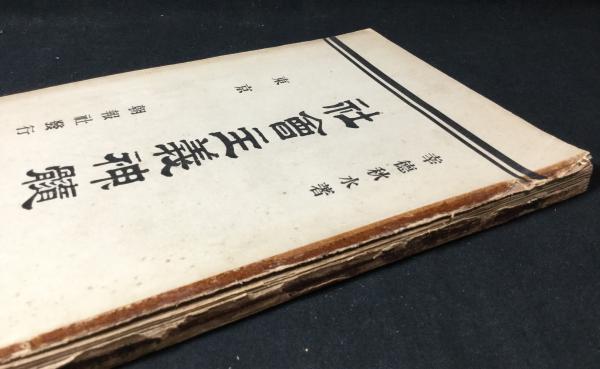 幸德秋水著
社會主義神髓
東京 朝報社發行